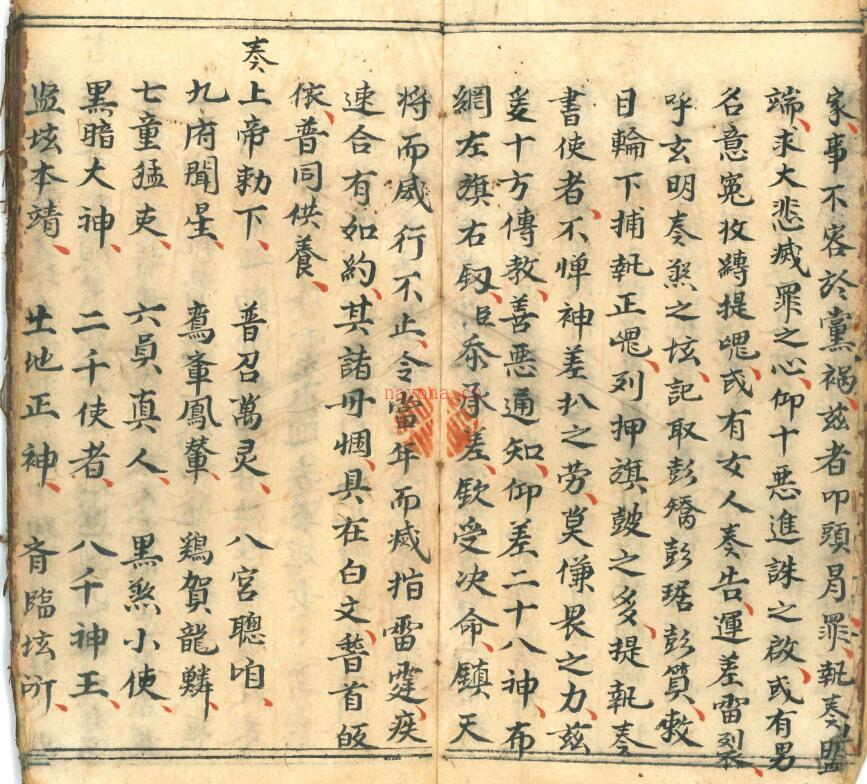 家事不容於黨禍兹者叩頭罪執奏
端求大悲滅罪之心仰十悪進誅之啟或有男
名意冤收縛提魂或有女人奏告運差雷
呼玄明奏煞之垓記取彭矯彭琚彭質敕
目輪下捕執正魂列押旗皷之多提執奏
書使者不惮神差扒之劳莫傔畏之力兹
爰十方傳教善惡通知仰差二十八神布
網左旗右釼臣忝承差欽受决命鎮天
将而威行不止令當年而滅指雷霆疾
速合有如約其諸丹悃具在白文替首皈
依普同供養
奏
上帝勅下 普召萬灵 八宮聰咱
九府聞星 鸞輂鳳輦 鷄賀龍鱗
七童猛吏 六員真人 黒煞小使
黒暗大神 二千使者 八千神王
监垓本靖 土地正神 斉臨垓所
nayona.cn